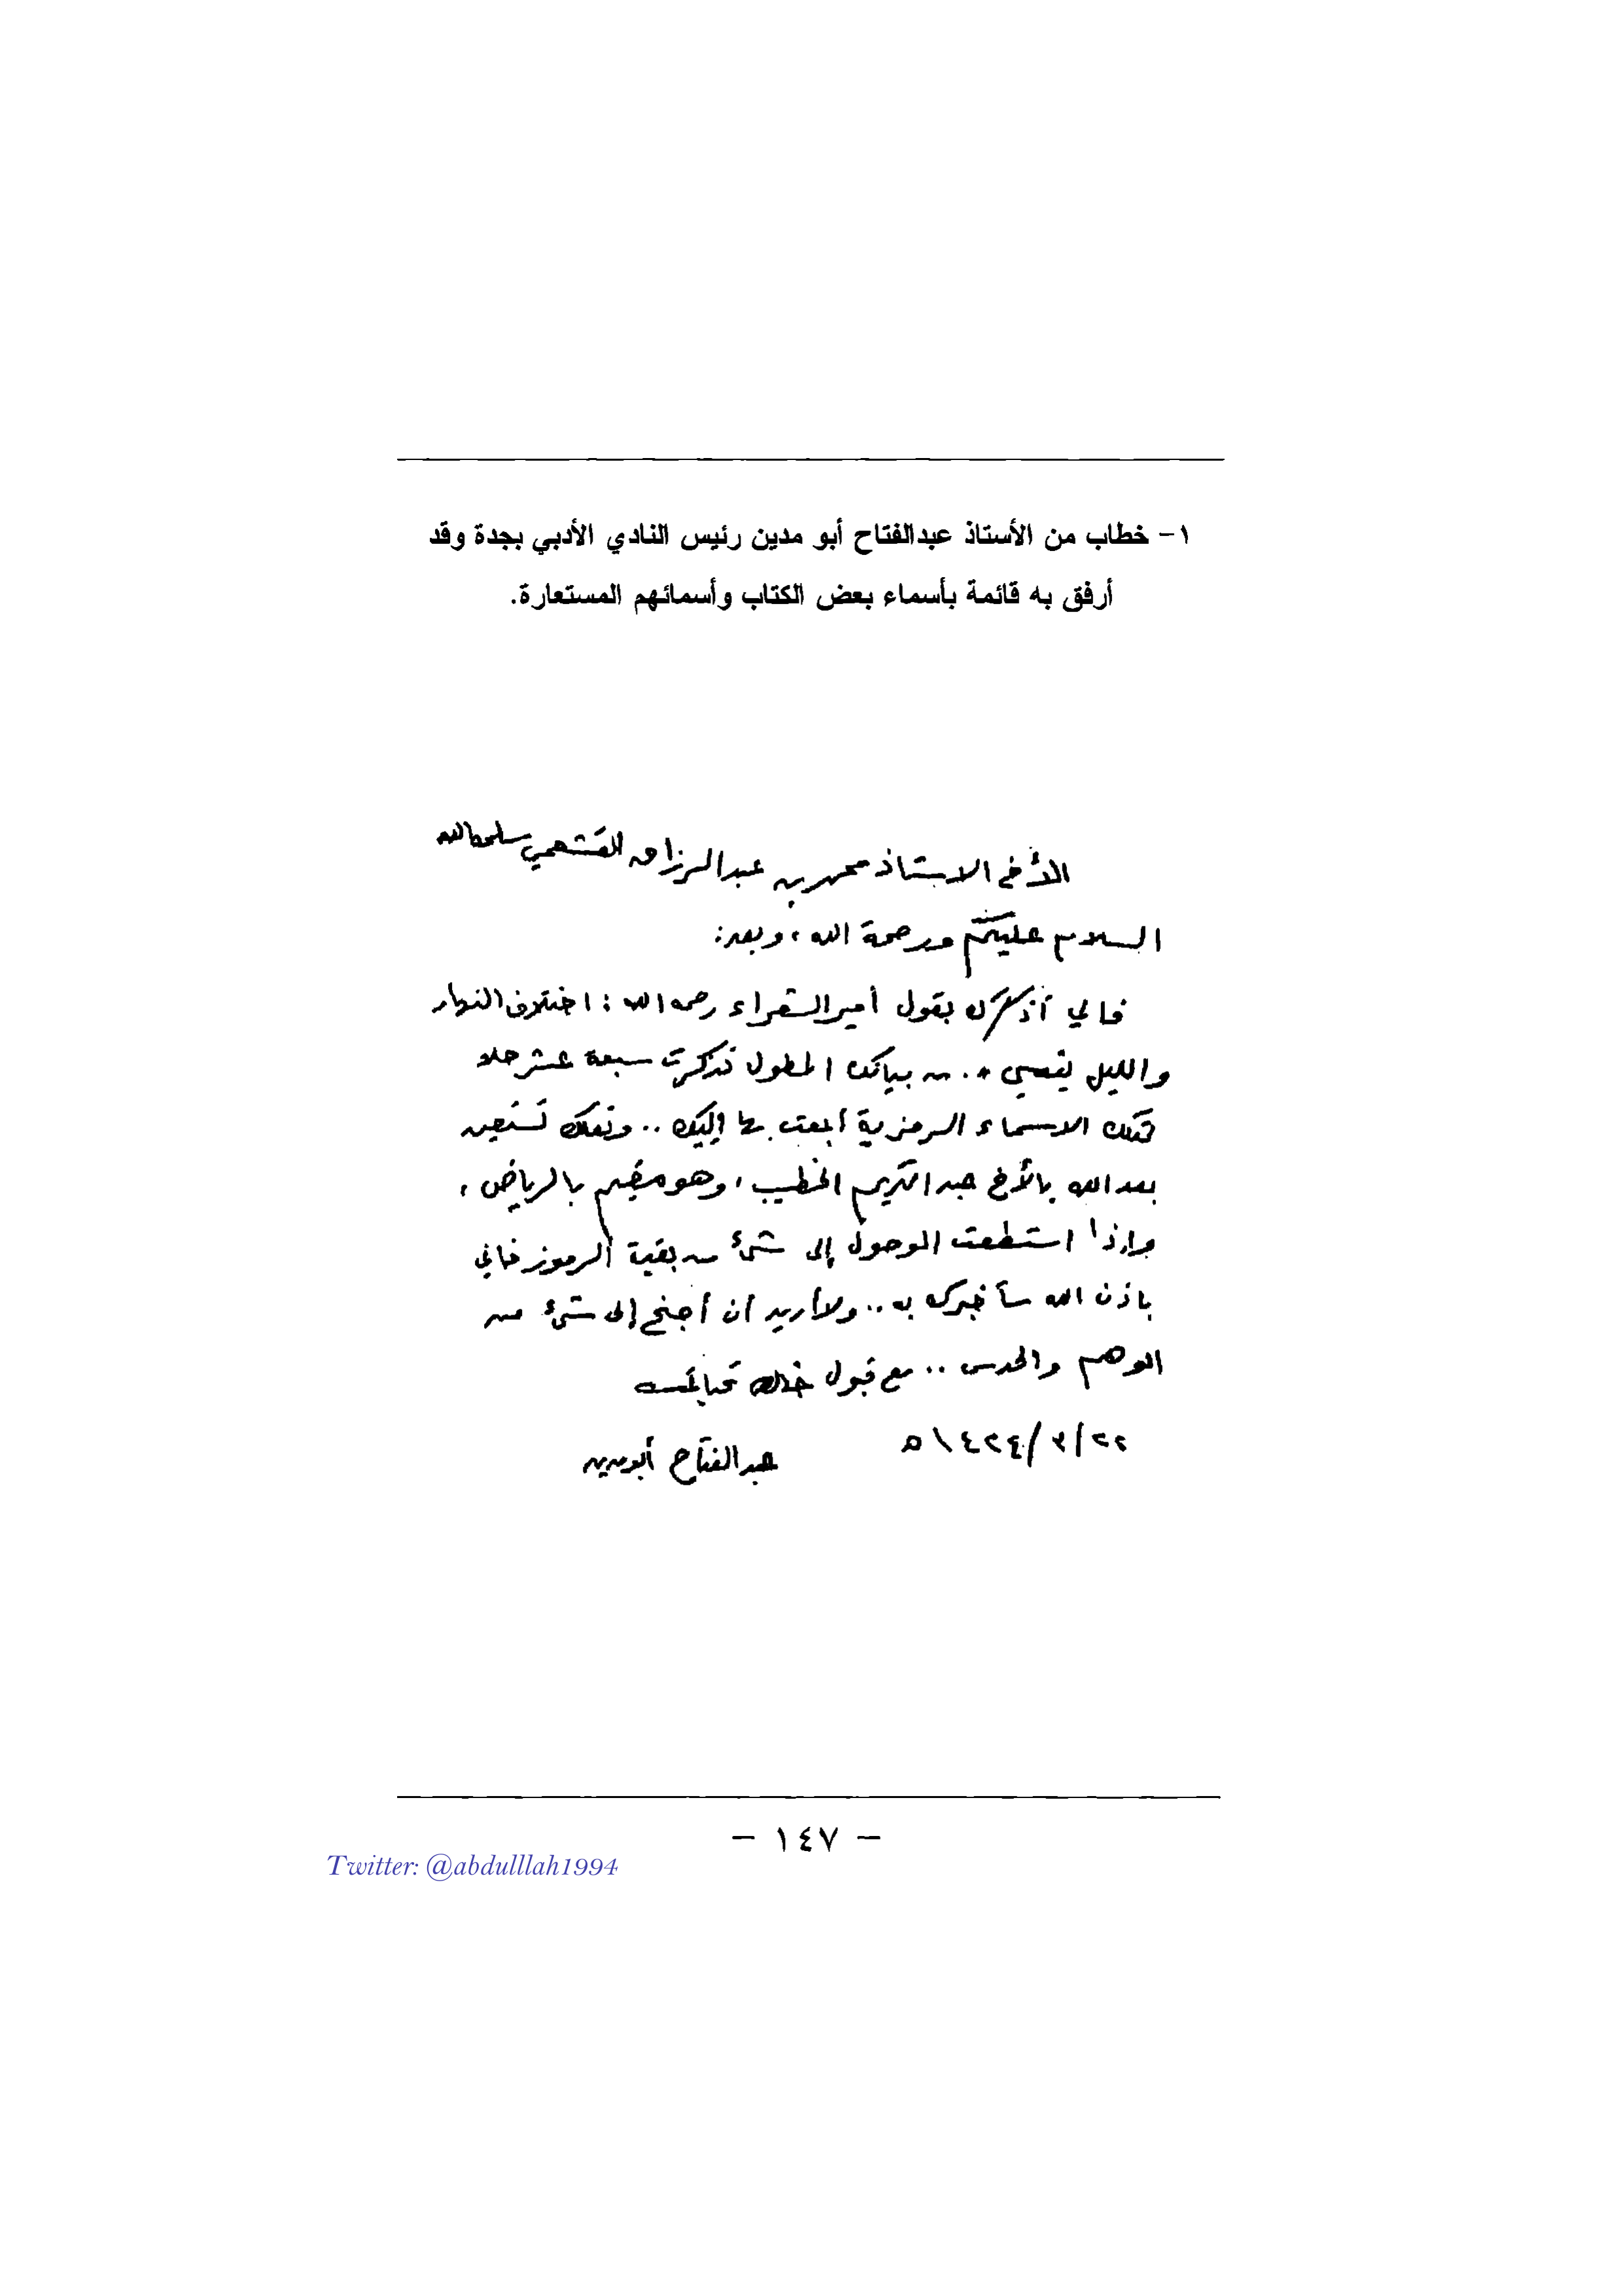 ١- خطاب من الأستاذ عبدالفتاح أبو مدين رئيس النادي الأدبي بجدة وقد
أرفق به قائمة بأسماء بعض الكتاب وأسمائهم المستعارة.
الأخ الاستاذ محمد بن عبدالرزاق القشعمي سلمه الله
السلام عليكم ورحمة الله، وبعد:
فإني أذكرك بقول أمير الشعراء رحمه الله: اختلاف النهار
والليل ينسي .. من بيانك المطول تذكرت سبعة عشر
تلك الاسماء الرمزية أبعث بها إليك .. ولعلك تستعين
بعد الله بالأخ عبدالكريم الخطيب، وهو مقيم بالرياض،
وإذا استطعت الوصول إلى شيء من بقية الرموز فإني
بإذن الله سأخبرك به .. ولا أريد أن أجنح إلى شيء من
الوهم والحدس .. مع قبول خالص تحياتي
٢٢/٣/١٤٢٤ه
عبدالفتاح أبو مدين
- ١٤٧ -
Twitter: @abdulllah1994